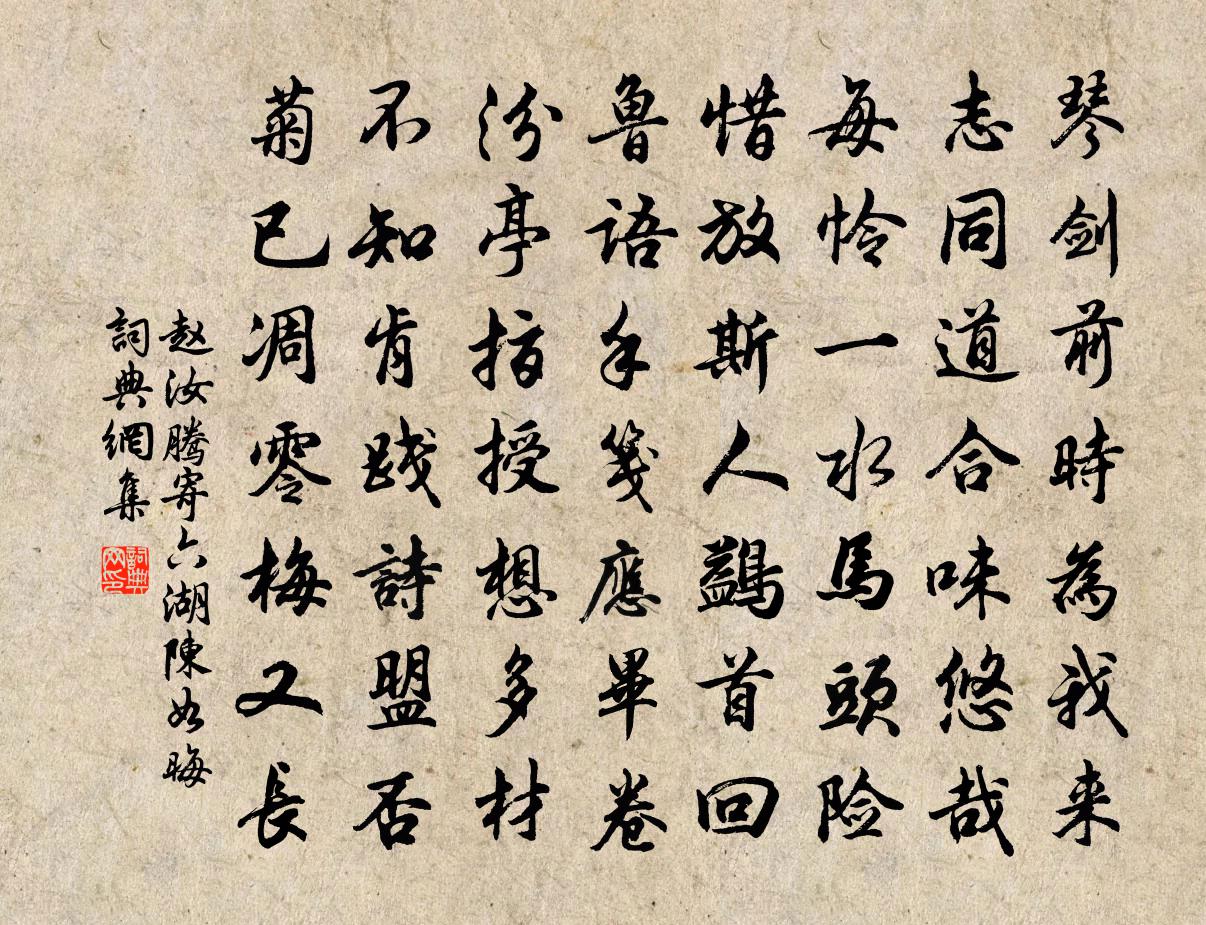 琴劍前時為我来
志同道合味悠哉
每怜一水馬頭險
惜放斯人鷁首回
魯語手箋應畢卷
汾亭指授想多材
不知肯踐詩盟否
菊已凋零梅又長
赵汝騰寄六湖陳如晦
詞典網集
詞典网印